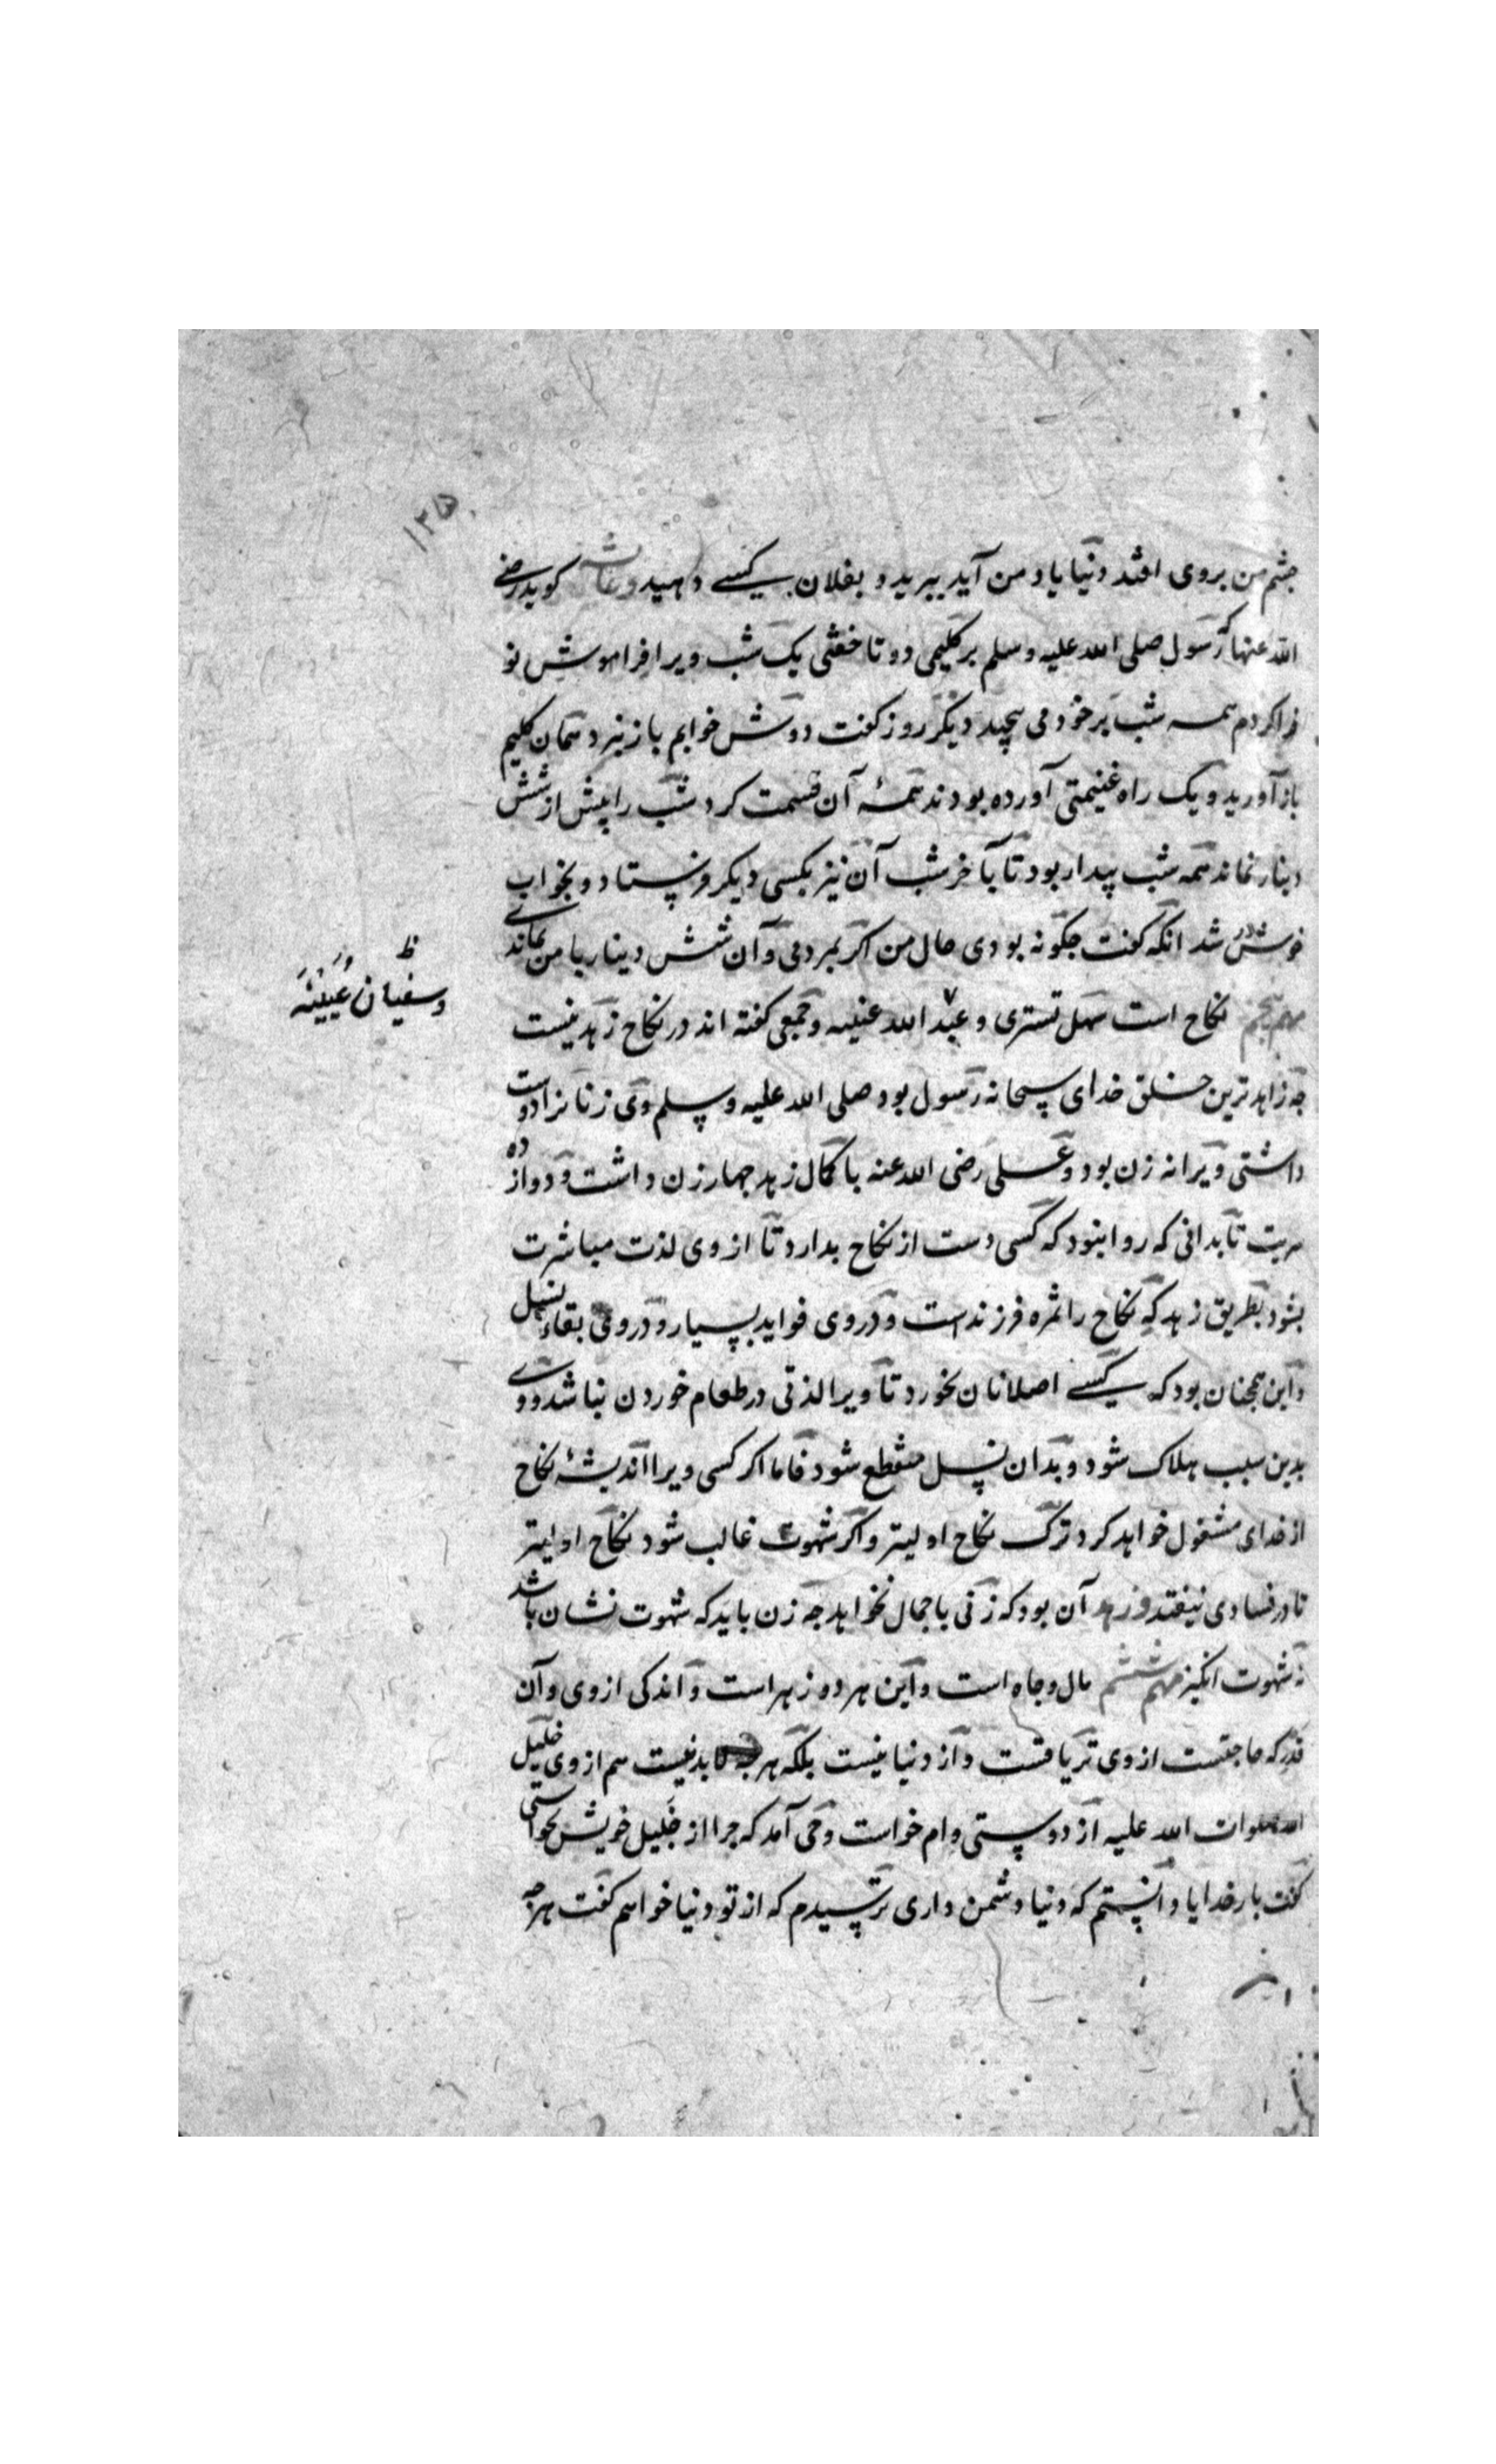 ۱۳۵
چشم من بروی افتد دنیا یاد من آید ببرید و بفلان کسی دهید و عایشه کوید رضی
الله عنها که رسول صلی الله علیه وسلم بر کلیمی دو تا خفتی یک شب ویرا فراموش نو
فرا کردم همه شب بر خود می پیچید دیکر روز کفت دوش خوابم باز نبرد همان کلیم
باز آورید و یک راه غنیمتی آورده بودند همهٔ آن قسمت کرد شب را پیش از شش
دینار نماند همه شب بیدار بود تا بآخر شب آن نیز بکسی دیکر فرستاد و بخواب
خوش در شد انکه کفت چکونه بودی حال من اکر بمردمی و آن شش دینار با من بماندی
مهم پنجم نکاح است سهل تستری و عبد الله عنیه و جمعی کفته اند در نکاح زهد نیست
و سفیان عُیَینَه
چه زاهدترین خلق خدای سبحانه رسول بود صلی الله علیه وسلم و وی زنانرا دوست
داشتی و ویرا نه زن بود و علی رضی الله عنه با کمال زهد چهار زن داشت و دوازده
سریت تا بدانی که روا نبود که کسی دست از نکاح بدارد تا از وی لذت مباشرت
بشود بطریق زهد که نکاح را ثمره فرزند است و در وی فواید بسیار و در وی بقاء نسل
و این همچنان بود که کسی اصلا نان نخورد تا ویرا لذتی در طعام خوردن نباشد و وی
بدین سبب هلاک شود و بدان نسل منقطع شود فاما اکر کسی ویرا اندیشهٔ نکاح
از خدای مشغول خواهد کرد ترک نکاح اولیتر و اکر شهوت غالب شود نکاح اولیتر
تا در فسادی نیفتد و زهد آن بود که زنی با جمال نخواهد چه زن باید که شهوت نشان باشد
نه شهوت انکیز مهم ششم مال و جاه است و این هر دو زهر است و اندکی از وی و آن
قدر که حاجتست از وی تریاقست و از دنیا نیست بلکه هرچه لابدیست هم از وی خلیل
الله صلوات الله علیه از دوستی وام خواست وحی آمد که چرا از خلیل خویش نخواستی
کفت بار خدایا دانستم که دنیا دشمن داری ترسیدم که از تو دنیا خواهم کفت هرچه